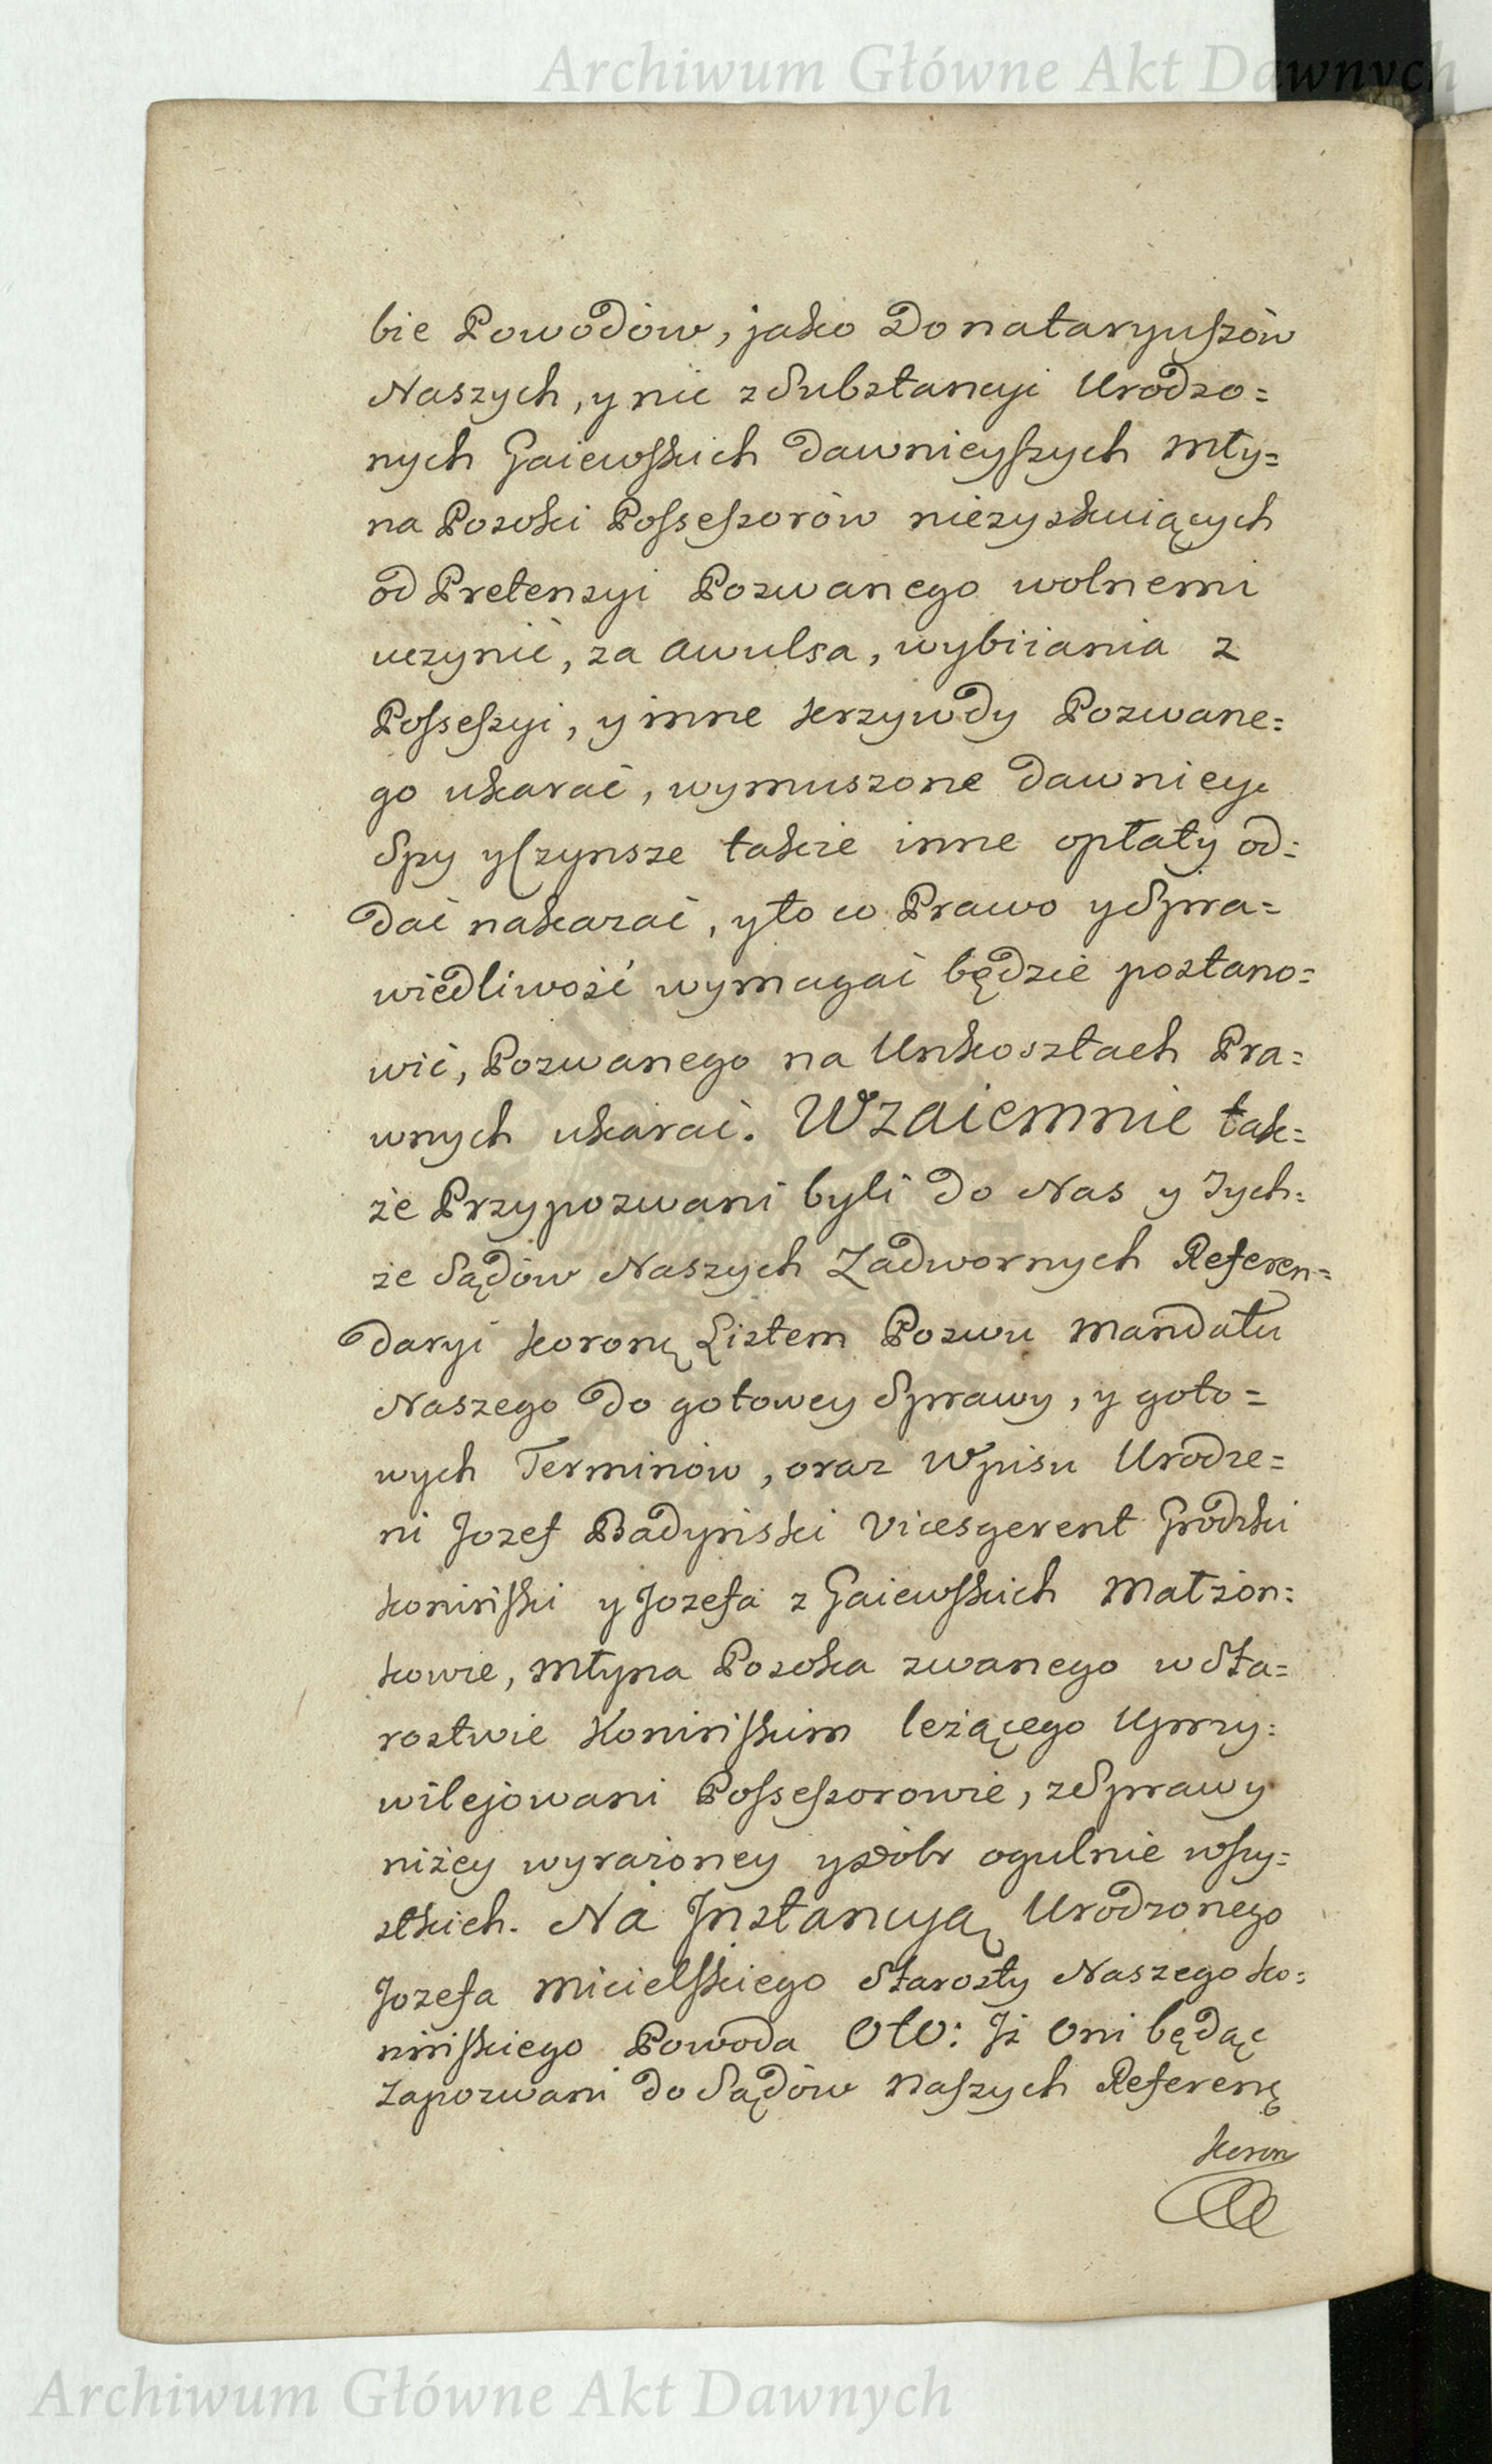 Archiwum Główne Akt Dawnych
bie Powodów, jako Donataryuszów
Naszych, y nie z Substancyi Urodzo=
nych Gaiewskich dawnieyszych Mły=
na Posoki Possessorów niezyskuiących
od Pretensyi Pozwanego wolnemi
uczynić, za awulsa, wybiiania z
Possessyi, y inne krzywdy Pozwane=
go ukarać, wymuszone dawniey
Spy y Czynsze takie inne opłaty od=
dać nakazać, y to co Prawo y Spra=
wiedliwość wymagać będzie postano=
wić, Pozwanego na Unkosztach Pra=
wnych ukarać. Wzaiemnie tak=
że Przypozwani byli do Nas y Tych=
że Sądów Naszych Zadwornych Referen=
daryi koronę Listem Pozwu Mandatu
Naszego do gotowey Sprawy, y goto=
wych Terminów, oraz Wpisu Urodze=
ni Jozef Badyński Vicesgerent Grodzki
koniński y Jozefa z Gaiewskich Małżon=
kowie, Młyna Posoka zwanego w Sta=
rostwie Konińskim leżącego Uprzy=
wilejowani Possessorowie, z Sprawy
niżey wyrażoney y z dóbr ogulnie wszy=
stkich. Na Instancyą Urodzonego
Jozefa Micielskiego Starosty Naszego ko=
nińskiego Powoda Oto: Iż Oni będąc
zapozwani do Sądów Naszych Referenę
koron
Archiwum Główne Akt Dawnych